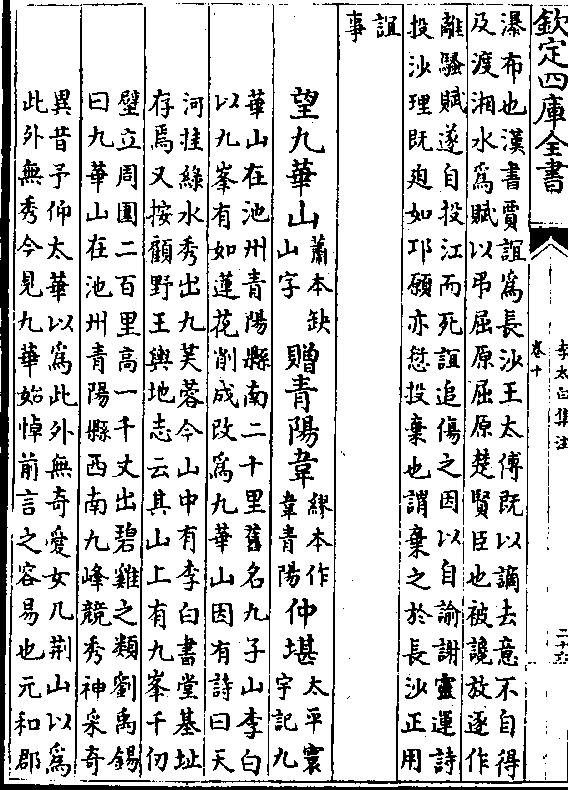 欽定四庫全書
李太白集注
卷十
瀑布也漢書賈誼為長沙王太傅既以謫去意不自得
及渡湘水為賦以弔屈原屈原楚賢臣也被讒放逐作
離騷賦遂自投江而死誼追傷之因以自諭謝靈運詩
投沙理既迫如邛願亦愆投棄也謂棄之於長沙正用
誼
事
望九華山蕭本缺山字贈青陽韋繆本作韋青陽仲堪太平寰宇記九
華山在池州青陽縣南二十里舊名九子山李白
以九峯有如蓮花削成改為九華山因有詩曰天
河挂綠水秀出九芙蓉今山中有李白書堂基址
存焉又按顧野王輿地志云其山上有九峯千仞
壁立周圍二百里高一千丈出碧雞之類劉禹錫
曰九華山在池州青陽縣西南九峰競秀神采奇
異昔予仰太華以為此外無奇愛女几荊山以為
此外無秀今見九華始悼前言之容易也元和郡